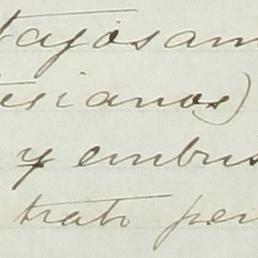 tajosam
tesianos)
y embus
trato per